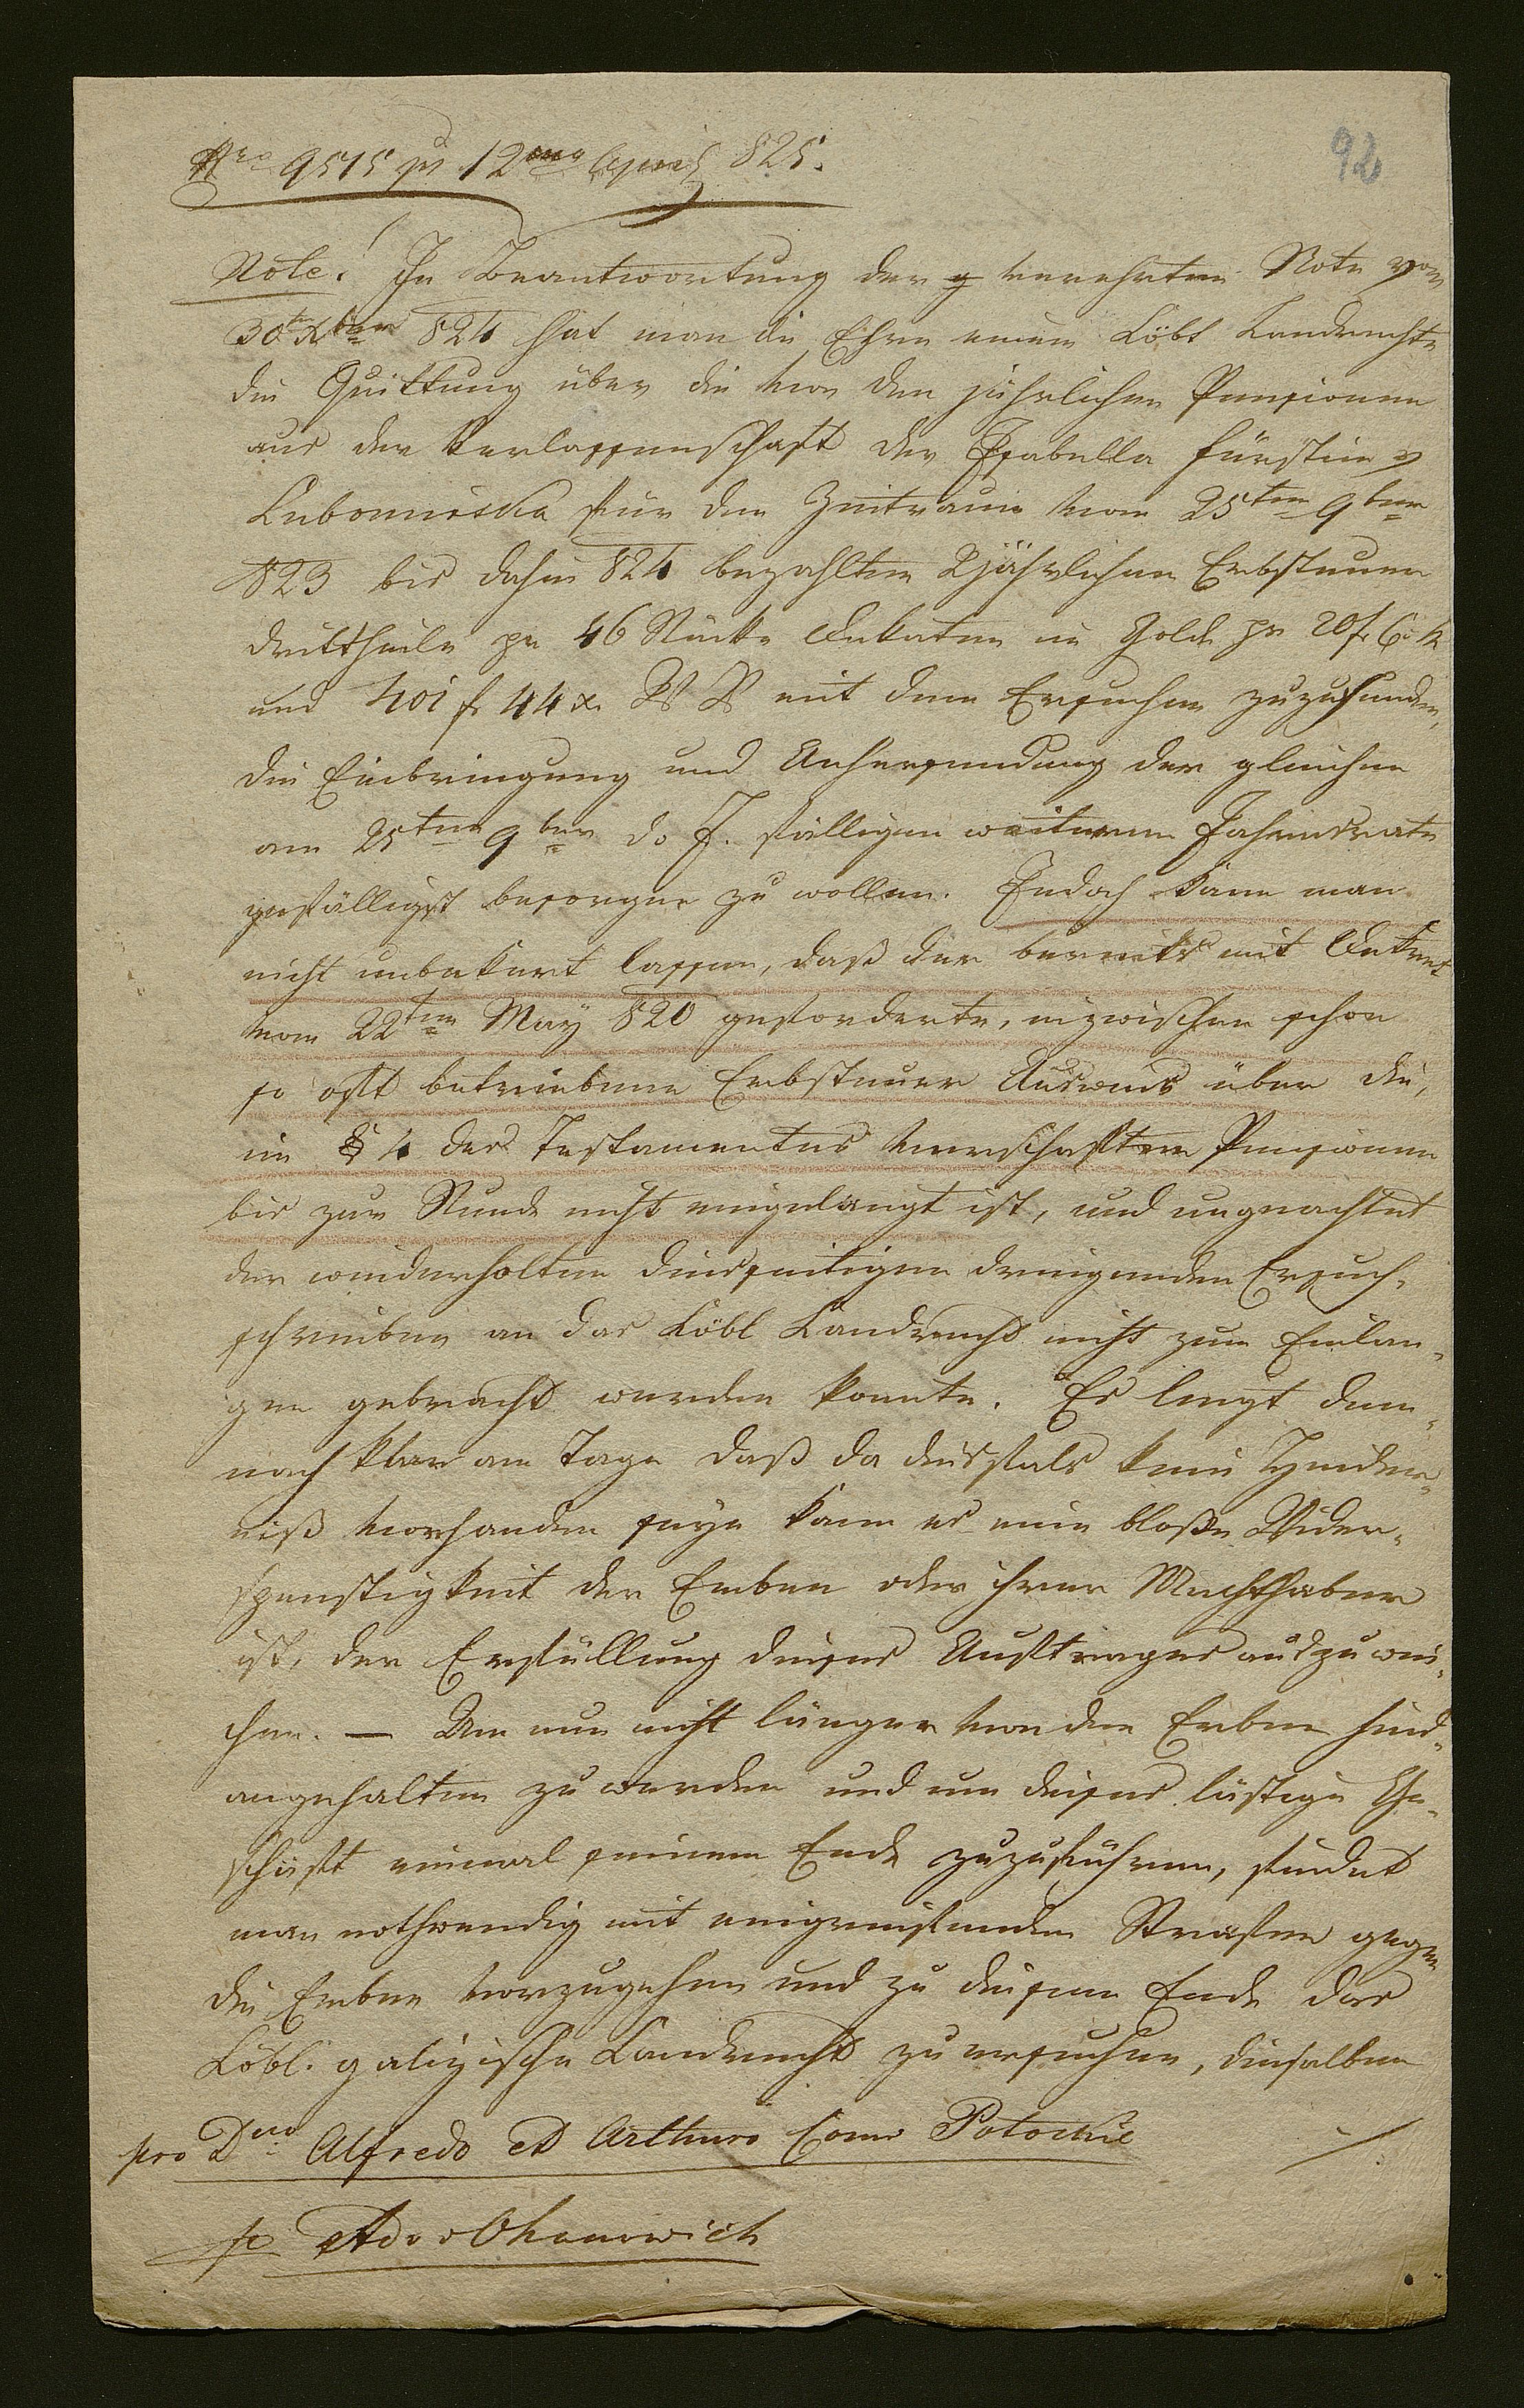 Nro 9515 pr 12ma April 825.
92
Note! In Beantwortung der g verehrten Note vom
30t Xber 824 hat man die Ehre einem Löbl Landrechte
die Quittung über die von den jährlichen Pensionen
aus der Verlassenschaft der Isabella Fürstin
Lubomirska für den Zeitraum vom 25ten 9ber
823 bis dahin 824 bezahlten jährlichen Erbsteuer
drittheile pr 46 Stücke Dukaten in Golde pr 20 f 6 k
und 401 f 44 x W W mit dem Ersuchen zuzusenden,
die Einbringung und Anhersendung der gleichen
am 25ten 9ber d. J. fälligen weiteren Jahresrate
gefälligst besorgen zu wollen. Jedoch kann man
nicht unbekert lassen, daß der bereits mit Dekret
vom 22ten May 820 geforderte, inzwischen schon
so oft betriebene Erbsteuer Ausweis über die,
im § 4 des Testamentes verschafften Pensionen
bis zur Stunde nicht eingelangt ist, und ungeachtet
der wiederholten diesseitigen dringenden Ersuch-
schreiben an das Löbl Landrecht nicht zum Einlan-
gen gebracht werden konnte. Es liegt dem-
nach klar am Tage daß da diesfals kein Hinder-
niß vorhanden seye kann es eine bloße Wider-
spenstigkeit der Erben oder ihrer Machthaber
ist, der Erfüllung dieses Auftrages auszuwei-
chen. — Um nun nicht länger von den Erben hind-
angehalten zu werden und um dieses lästige Ge-
schäft einmal seinem Ende zuzuführen, findet
man nothwendig mit eingreifenden Strafen gegen
die Erben vorzugehen und zu diesem Ende das
Löbl. galizische Landrecht zu ersuchen, dieselben
pro Dno Alfredo et Arthuro Com Potockie
./.
Adv